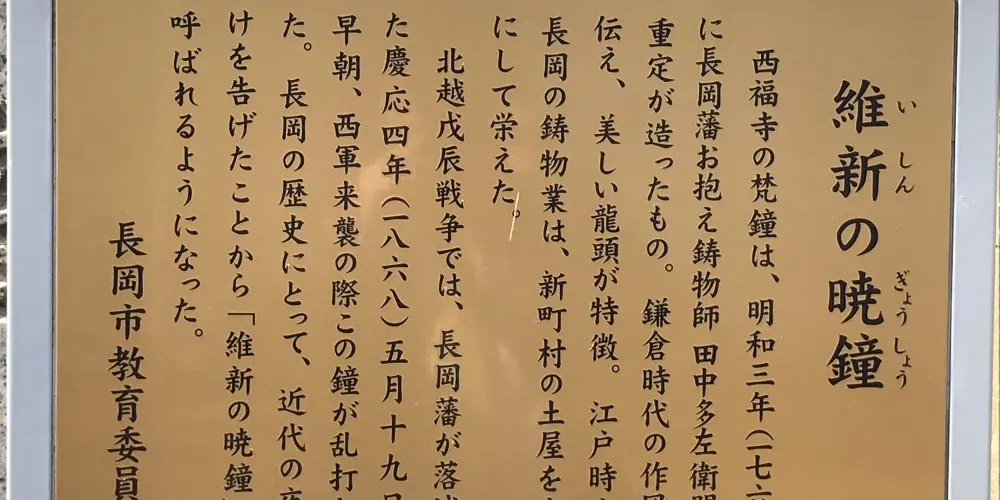 維新の暁鐘
いしん ぎょうしょう
西福寺の梵鐘は、明和三年(一七六
に長岡藩お抱え鋳物師 田中多左衛門
重定が造ったもの。鎌倉時代の作風
伝え、美しい龍頭が特徴。江戸時
長岡の鋳物業は、新町村の土屋を
にして栄えた。
北越戊辰戦争では、長岡藩が落城
た慶応四年(一八六八)五月十九日
早朝、西軍来襲の際この鐘が乱打
た。長岡の歴史にとって、近代の夜
けを告げたことから「維新の暁鐘
呼ばれるようになった。
長岡市教育委員